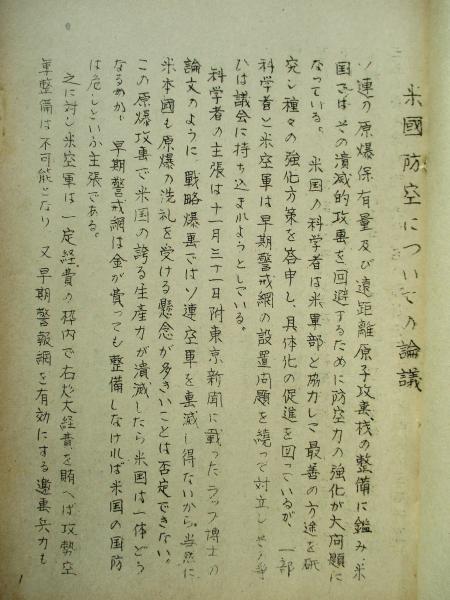 米國防空についての論議
ソ連の原爆保有量及び遠距離原子攻撃機の整備に鑑み米
国では、その潰滅的攻撃を回避するために防空力の強化が大問題に
なっている。米国の科学者は米軍部と協力して最善の方途を研
究し種々の強化方策を答申し、具体化の促進を図っているが、一部
科学者と米空軍は早期警戒網の設置問題を繞って対立し
は議会に持ち込まれようとしている。
科学者の主張は十一月三十一日附東京新聞に載ったラップ博士の
論文のように、戦略爆撃ではソ連空軍を撃滅し得ないから、当然に
米本國も原爆の洗礼を受ける懸念が多きいことは否定できない。
この原爆攻撃で米国の誇る生産力が潰滅したら米国は一体どう
なるのか、早期警戒網は金が費っても整備しなければ米国の国防
は危しといふ主張である。
之に対し米空軍は一定経費の枠内で右厖大経費を賄へば攻勢空
軍整備は不可能となり、又早期警報網を有効にする邀撃兵力も